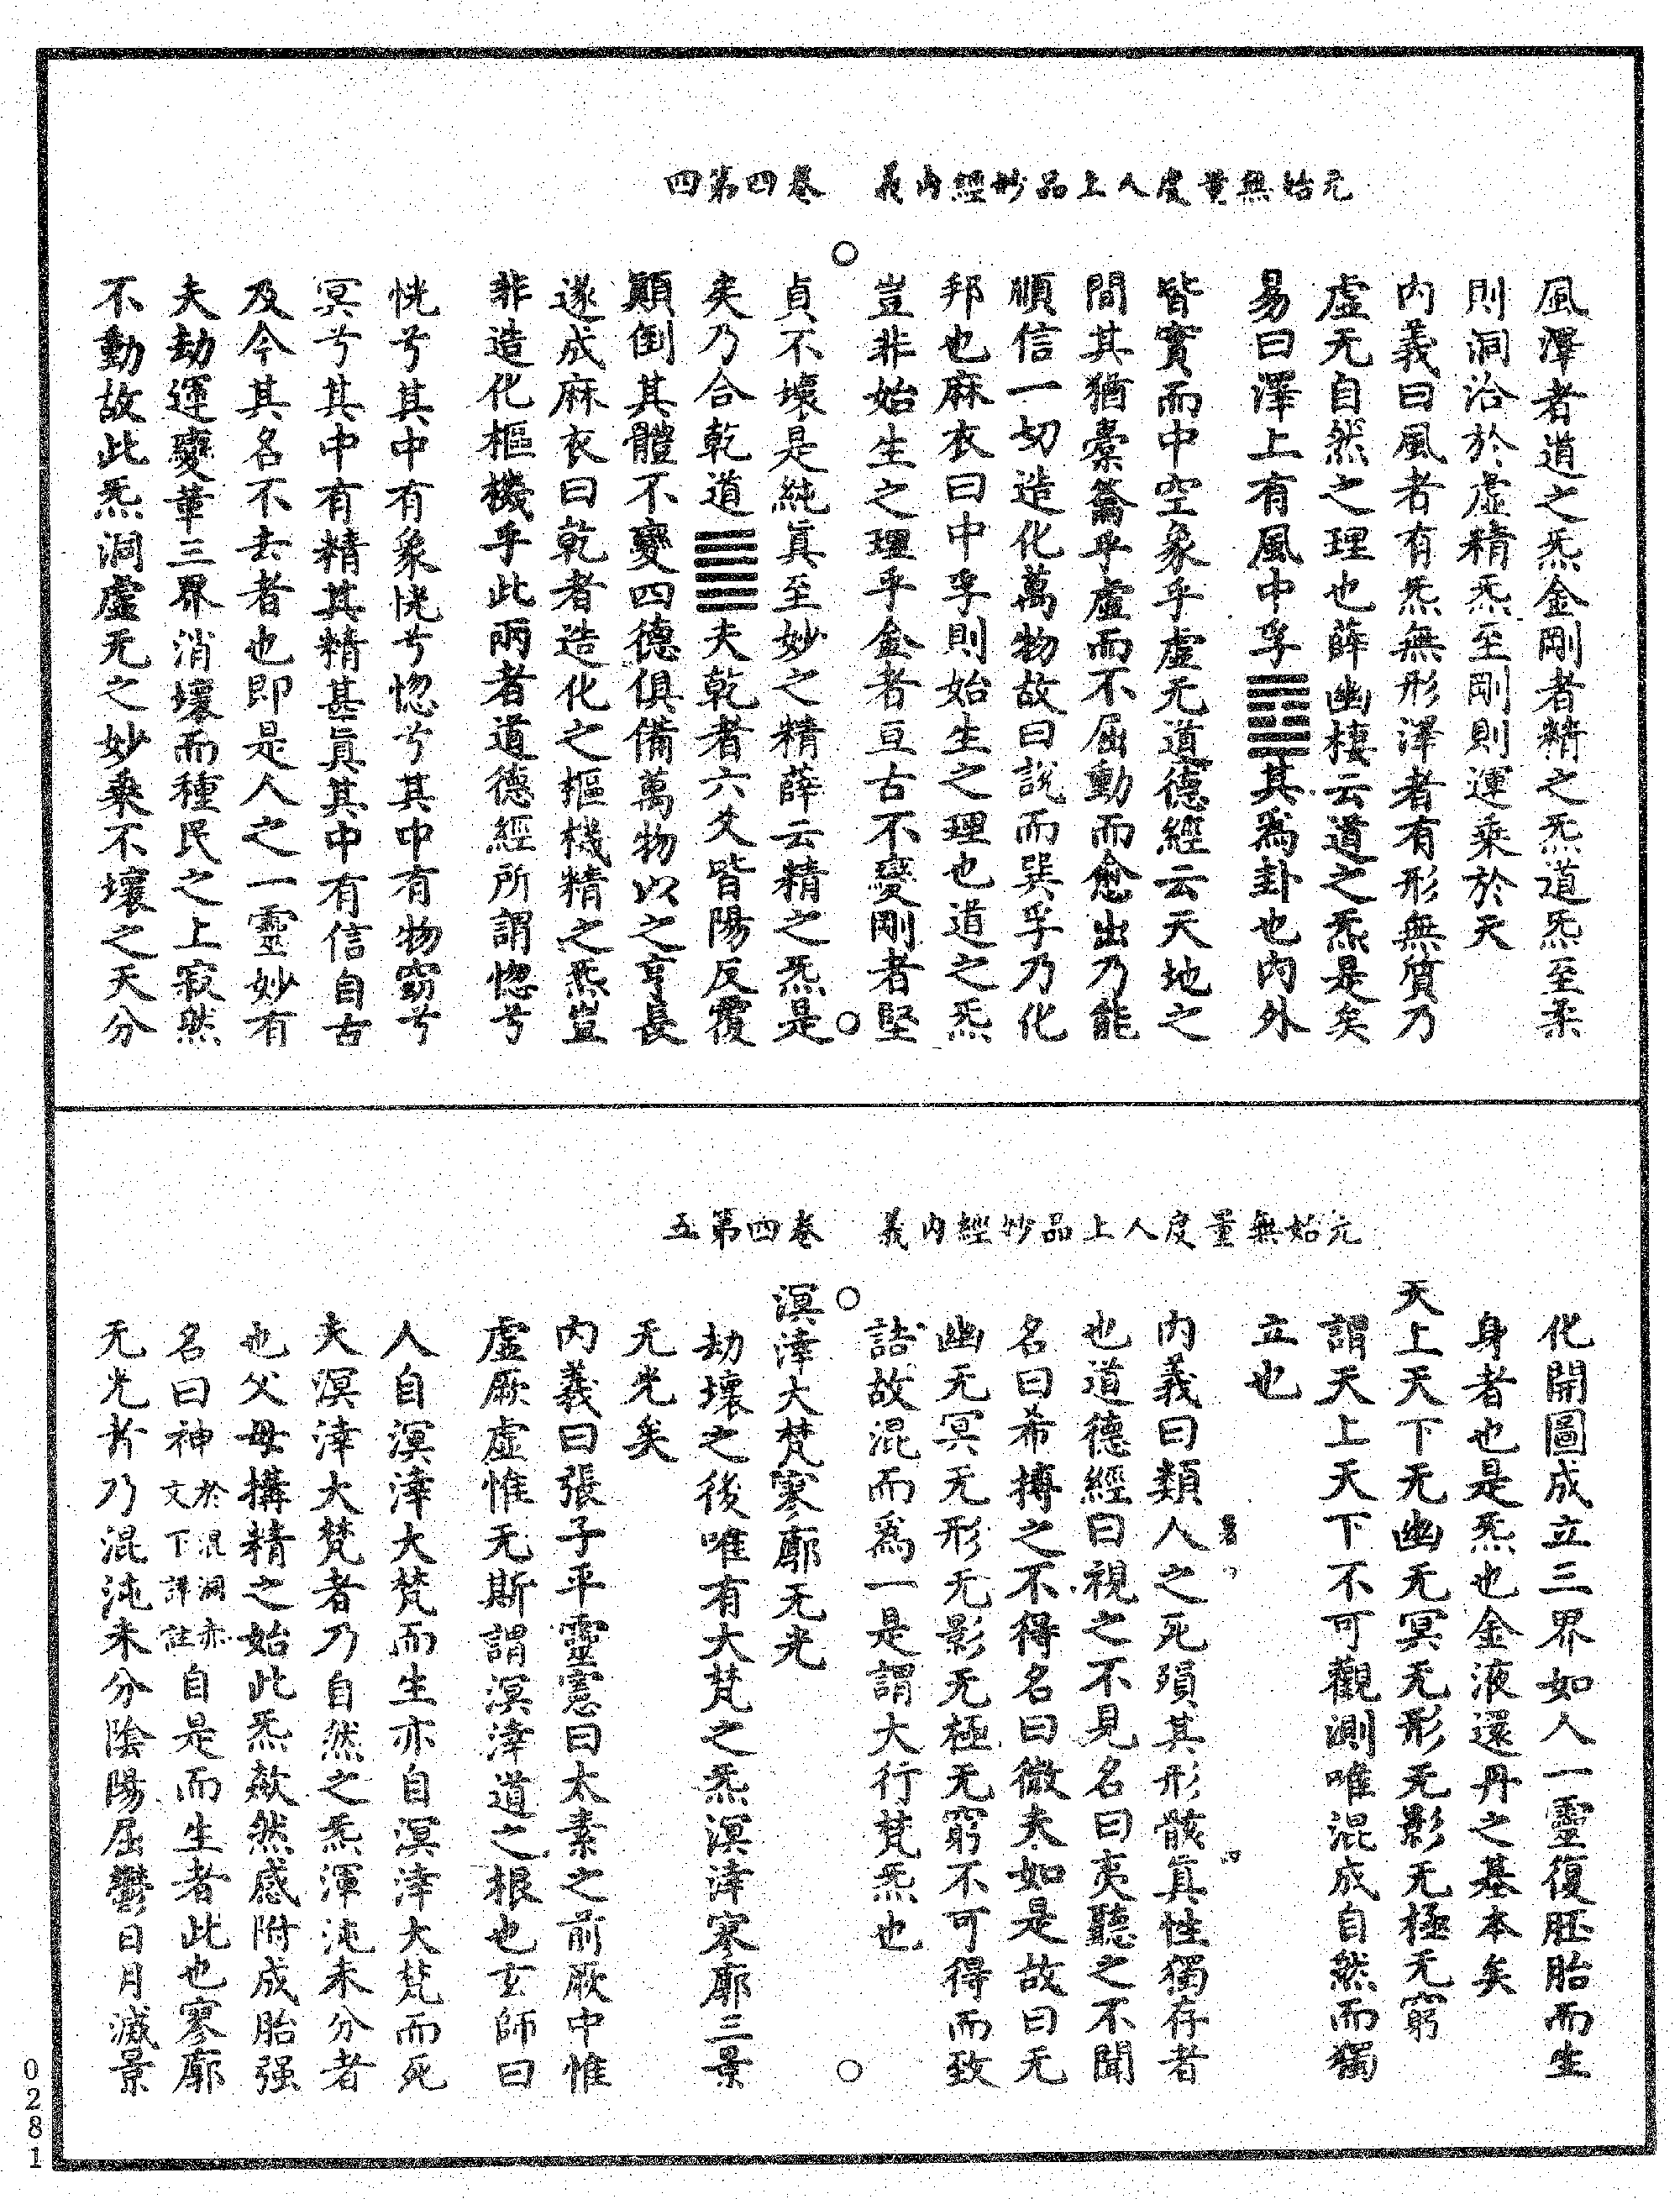 元始無量度人上品妙經內義　卷四第四
風澤者道之炁金剛者精之炁道炁至柔
則洞治於虛精炁至剛則運乘於天
內義曰風者有炁無形澤者有形無質乃
虛无自然之理也薛幽棲云道之炁是矣
易曰澤上有風中孚䷼其爲卦也內外
皆實而中空象乎虛无道德經云天地之
間其猶橐籥乎虛而不屈動而愈出乃能
順信一切造化萬物故曰說而巽孚乃化
邦也麻衣曰中孚則始生之理也道之炁
豈非始生之理乎金者亘古不變剛者堅
貞不壞是純眞至妙之精薛云精之炁是
矣乃合乾道䷀夫乾者六爻皆陽反覆
顚倒其體不變四德俱備萬物以之亨長
遂成麻衣曰乾者造化之樞機精之炁豈
非造化樞機乎此兩者道德經所謂惚兮
恍兮其中有象恍兮惚兮其中有物窈兮
冥兮其中有精其精甚眞其中有信自古
及今其名不去者也即是人之一靈妙有
夫劫運變革三界消壞而種民之上寂然
不動故此炁洞虛无之妙乘不壞之天分
元始無量度人上品妙經內義　卷四第五
化開圖成立三界如人一靈復胚胎而生
身者也是炁也金液還丹之基本矣
天上天下无幽无冥无形无影无極无窮
謂天上天下不可觀測唯混成自然而獨
立也
內義曰類人之死殞其形骸眞性獨存者
也道德經曰視之不見名曰夷聽之不聞
名曰希搏之不得名曰微夫如是故曰无
幽无冥无形无影无極无窮不可得而致
詰故混而爲一是謂大行梵炁也
溟涬大梵寥廓无光
劫壞之後唯有大梵之炁溟涬寥廓三景
无光矣
內義曰張子平靈憲曰太素之前厥中惟
虛厥虛惟无斯謂溟涬道之根也玄師曰
人自溟涬大梵而生亦自溟涬大梵而死
夫溟涬大梵者乃自然之炁渾沌未分者
也父母搆精之始此炁歘然感附成胎强
名曰神於混洞赤文下詳註自是而生者此也寥廓
无光者乃混沌未分陰陽屈鬱日月減景
0281